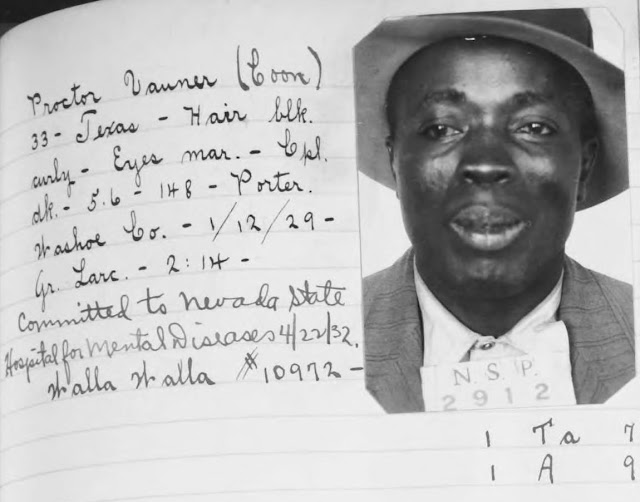 Proctor Vauner (Coon)
33 - Texas - Hair blk.
curly - Eyes mar. - Cpl.
dk. - 5.6 - 148 - Porter.
Washoe Co. - 1/12/29 -
Gr. Larc. - 2:14 -
Committed to Nevada State
Hospital for Mental Diseases 4/22/32.
Walla Walla #10972 -
N. S. P.
2912
1 Ta 7
1 A 9